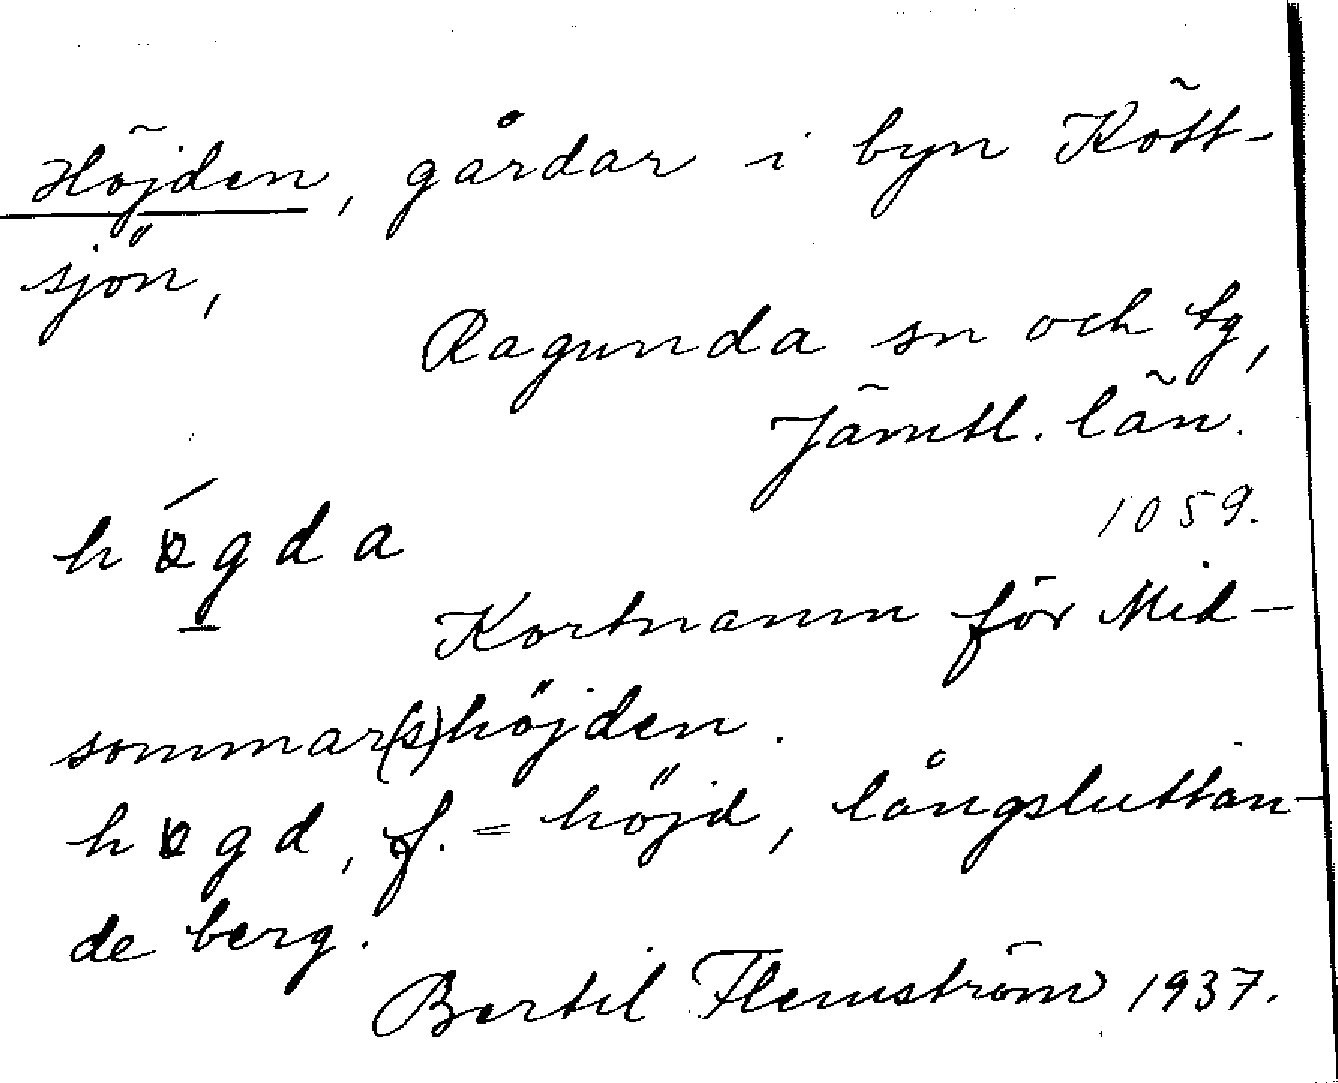 Höjden, gårdar i byn Kött-
sjön,
Ragunda sn och tg,
Jämtl. län.
1059.
högda
Kortnamn för Mid-
sommar(s)höjden.
högd, f. = höjd, långsluttan-
de berg.
Bertil Flemström 1937.